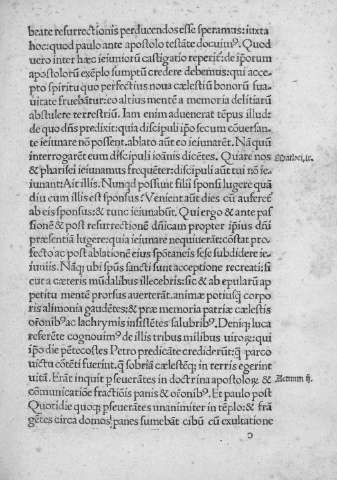 beate resurrectionis perducendos esse speramus: iuxta
hoc: quod paulo ante apostolo testāte docuimꝰ. Quod
uero inter hæc ieiuniorū castigatio reperit̄: de ip̄orum
apostolorū exēplo sumptū credere debemus: qui acce-
pto spiritu quo perfectius noua cælestiū bonorū sua-
uitate fruebāt̄ur: eo altius mentē a memoria delitiarū
abstulere terrestriū. Iam enim aduenerat tēpus illud:
de quo dn̄s prædixit: quia discipuli ip̄o secum cōuersan-
te ieiunare nō possent. ablato aūt eo ieiunarēt. Nā quū
interrogarēt eum discipuli ioānis dicētes. Quare nos
& pharisei ieiunamus frequēter: discipuli aūt tui nō ie-
iunant: Ait illis. Nunqd possunt filii sponsi lugere quā
diu cum illis est sponsus? Venient aūt dies cū auferet̄
ab eis sponsus: & tunc ieiunabūt. Qui ergo & ante pas
sionē & post resurrectionē dn̄icam propter ip̄ius dn̄i
præsentiā lugere: quia ieiunare nequiuerāt: cōstat pro-
fecto ac post ablationē eius spōtaneis sese subdidere ie-
iuniis. Nāqꝫ ubi sp̄us sancti sunt acceptione recreati: si
cut a cæteris mūdalibus illecebris: sic & ab epularū ap
petitu mentē prorsus auerterāt. animæ potiusqꝫ corpo
ris alimonia gaudētes: & præ memoria patriæ cælestis
or̄onibꝰ ac lachrymis insistētes salubribꝰ. Deniqꝫ luca
referēte cognouimꝰ de illis tribus milibus uiroꝝ: qui
ip̄o die pētecostes Petro prædicāte crediderūt: ꝙ parco
uictu cōtēti fuerint. ꝙ sobriā cælestēqꝫ in terris egerint
uitā. Erāt inquit ꝑseuerātes in doctrina apostoloꝝ &
cōmunicatiōe fractiōis panis & or̄onibꝰ. Et paulo post
Quotidie quoqꝫ ꝑseuerātes unanimiter in tēplo: & frā
gētes circa domos panes sumebāt cibū cū exultatione
Actuum ij.